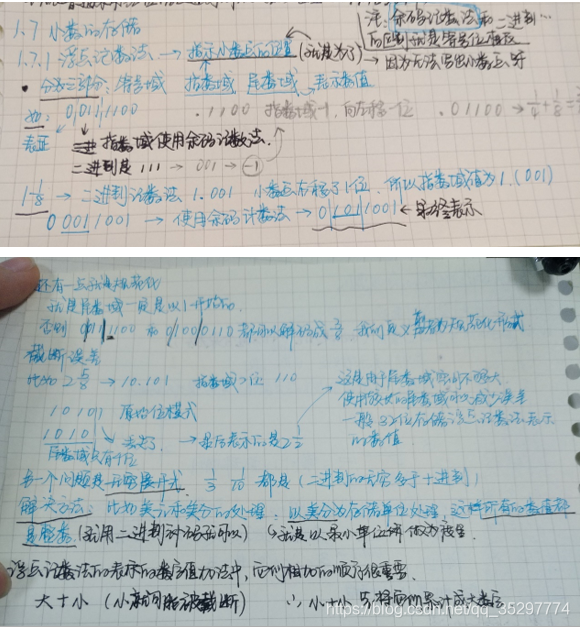 1.7 小数的存储
注: 余码记数法和二进制…
的区别就是符号位相反
1.7.1 浮点记数法 → 指示小数点的位置
→ 因为无法写出小数点
• 分为三部分: 符号域 指数域 尾数域 → 表示数值
如: 01101100 .1100 指数域 1, 向右移一位 .01100 → 1/4 + 1/8 =
指数域使用余码计数法.
二进制是 111 → 001 → -1
1 1/8 → 二进制记数法 1.001 小数点右移了1位 所以指数域值为1. (001)
0 001 1001 → 使用余码计数法 → 0 101 1001 ← 最终表示
还有一点就是规范化
就是尾数域一般是以1开始的.
否则 00111100 和 01000110 都可以解码成 3/8 我们定义 为规范化形式
截断误差
比如 2 5/8 → 10.101 指数域2位 110
这是由于尾数域空间不够大
使用较长的尾数域可以减少误差
10101 原始位模式
一般32位存储浮点记数法表示
1010 1 → 丢失了. → 最后表示的是 2 1/2
的数值
尾数域只有4位
另一个问题是无穷展开式. 1/3 1/10 都是 (二进制的无穷多于十进制)
解决方法: 比如美元和美分的处理. 以美分为存储单位处理, 这样所有的数值都
是整数 (就用二进制补码就可以) ↳ 就是以最小单位
浮点记数法的表示的数字值加法中, 它们相加的顺序很重要.
大+小 (小的可能被截断) ∴ 小+小 先将
https://blog.csdn.net/qq_35297774